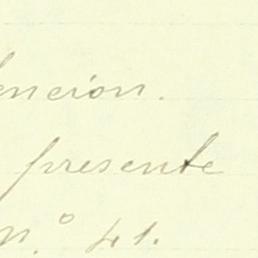 encion.
presente
n.° 41.